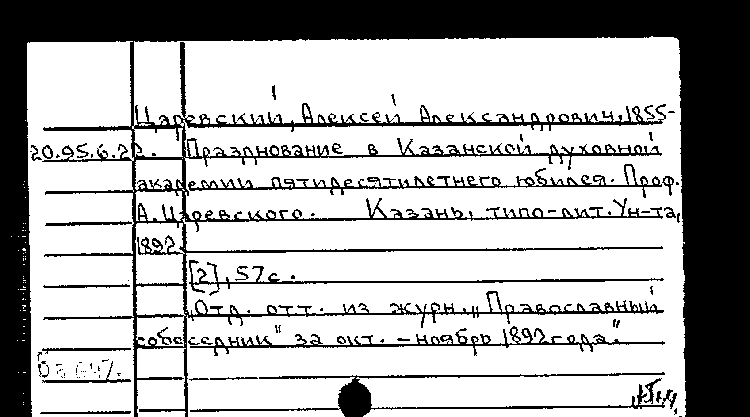 Царевский, Алексей Александрович, 1855-
20.95.6.22. Празднование в Казанской духовной
академии пятидесятилетнего юбилея. Проф.
А. Царевского. Казань, типо-лит. Ун-та,
1892.
[2], 57с.
„Отд. отт. из журн. „Православный
собеседник" за окт. – ноябрь 1892 года."